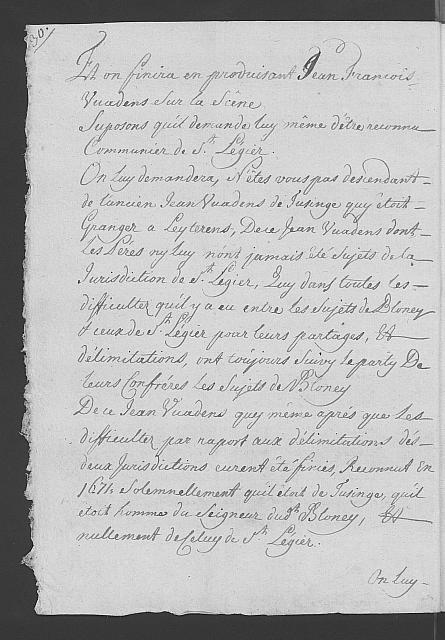 30.
Et on finira en produisant Jean Francois
Vuadens sur la Scêne
Suposons quil demande luy même d'être reconnu
Communier de S.t Légier.
On Luy demandera, N'êtes vous pas descendant
de l'ancien Jean Vuadens de Tusinge quy étoit
Granger a Leyterens, De ce Jean Vuadens dont
les Péres ny luy nónt jamais été Sujets de la
Jurisdiction de S.t Légier, Quy dans toutes les
difficultez quil y a eu entre les Sujets de Bloney
& ceux de S.t Légier pour leurs partages, &
délimitations, ont toujours Suivy le party De
leurs Confréres les Sujets de Bloney
De ce Jean Vuadens quy même aprés que les
difficultez par raport aux délimitations dés
deux Jurisdictions eurent été finies, Reconnut En
1674 Solemnellement quil étoit de Tusinge, quil
étoit homme du Seigneur dud.t Bloney, &
nullement de Celuy de S.t Légier.
On Luy